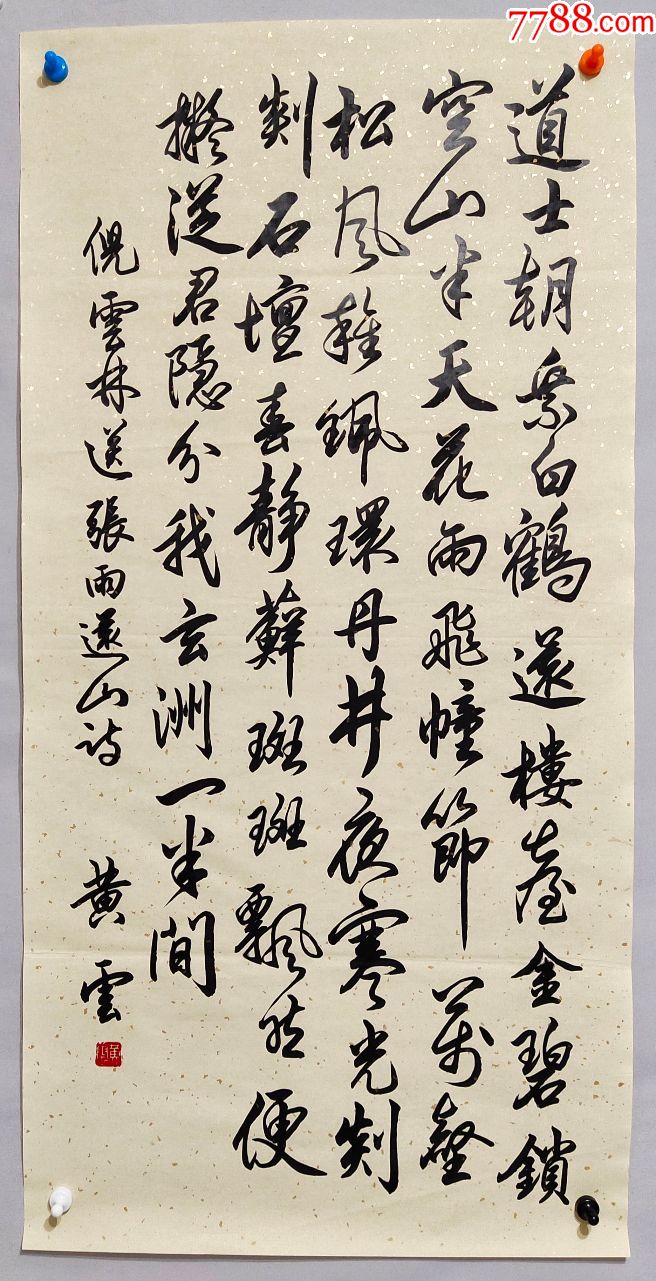 7788.com
道士朝乘白鶴還樓臺金碧鎖
空山半天花雨飛幢節萬壑
松風雜珮環丹井夜寒光剡
剡石壇春靜蘚斑斑飄然便
擬從君隱分我玄洲一半間
倪雲林送張雨還山詩
黄雲